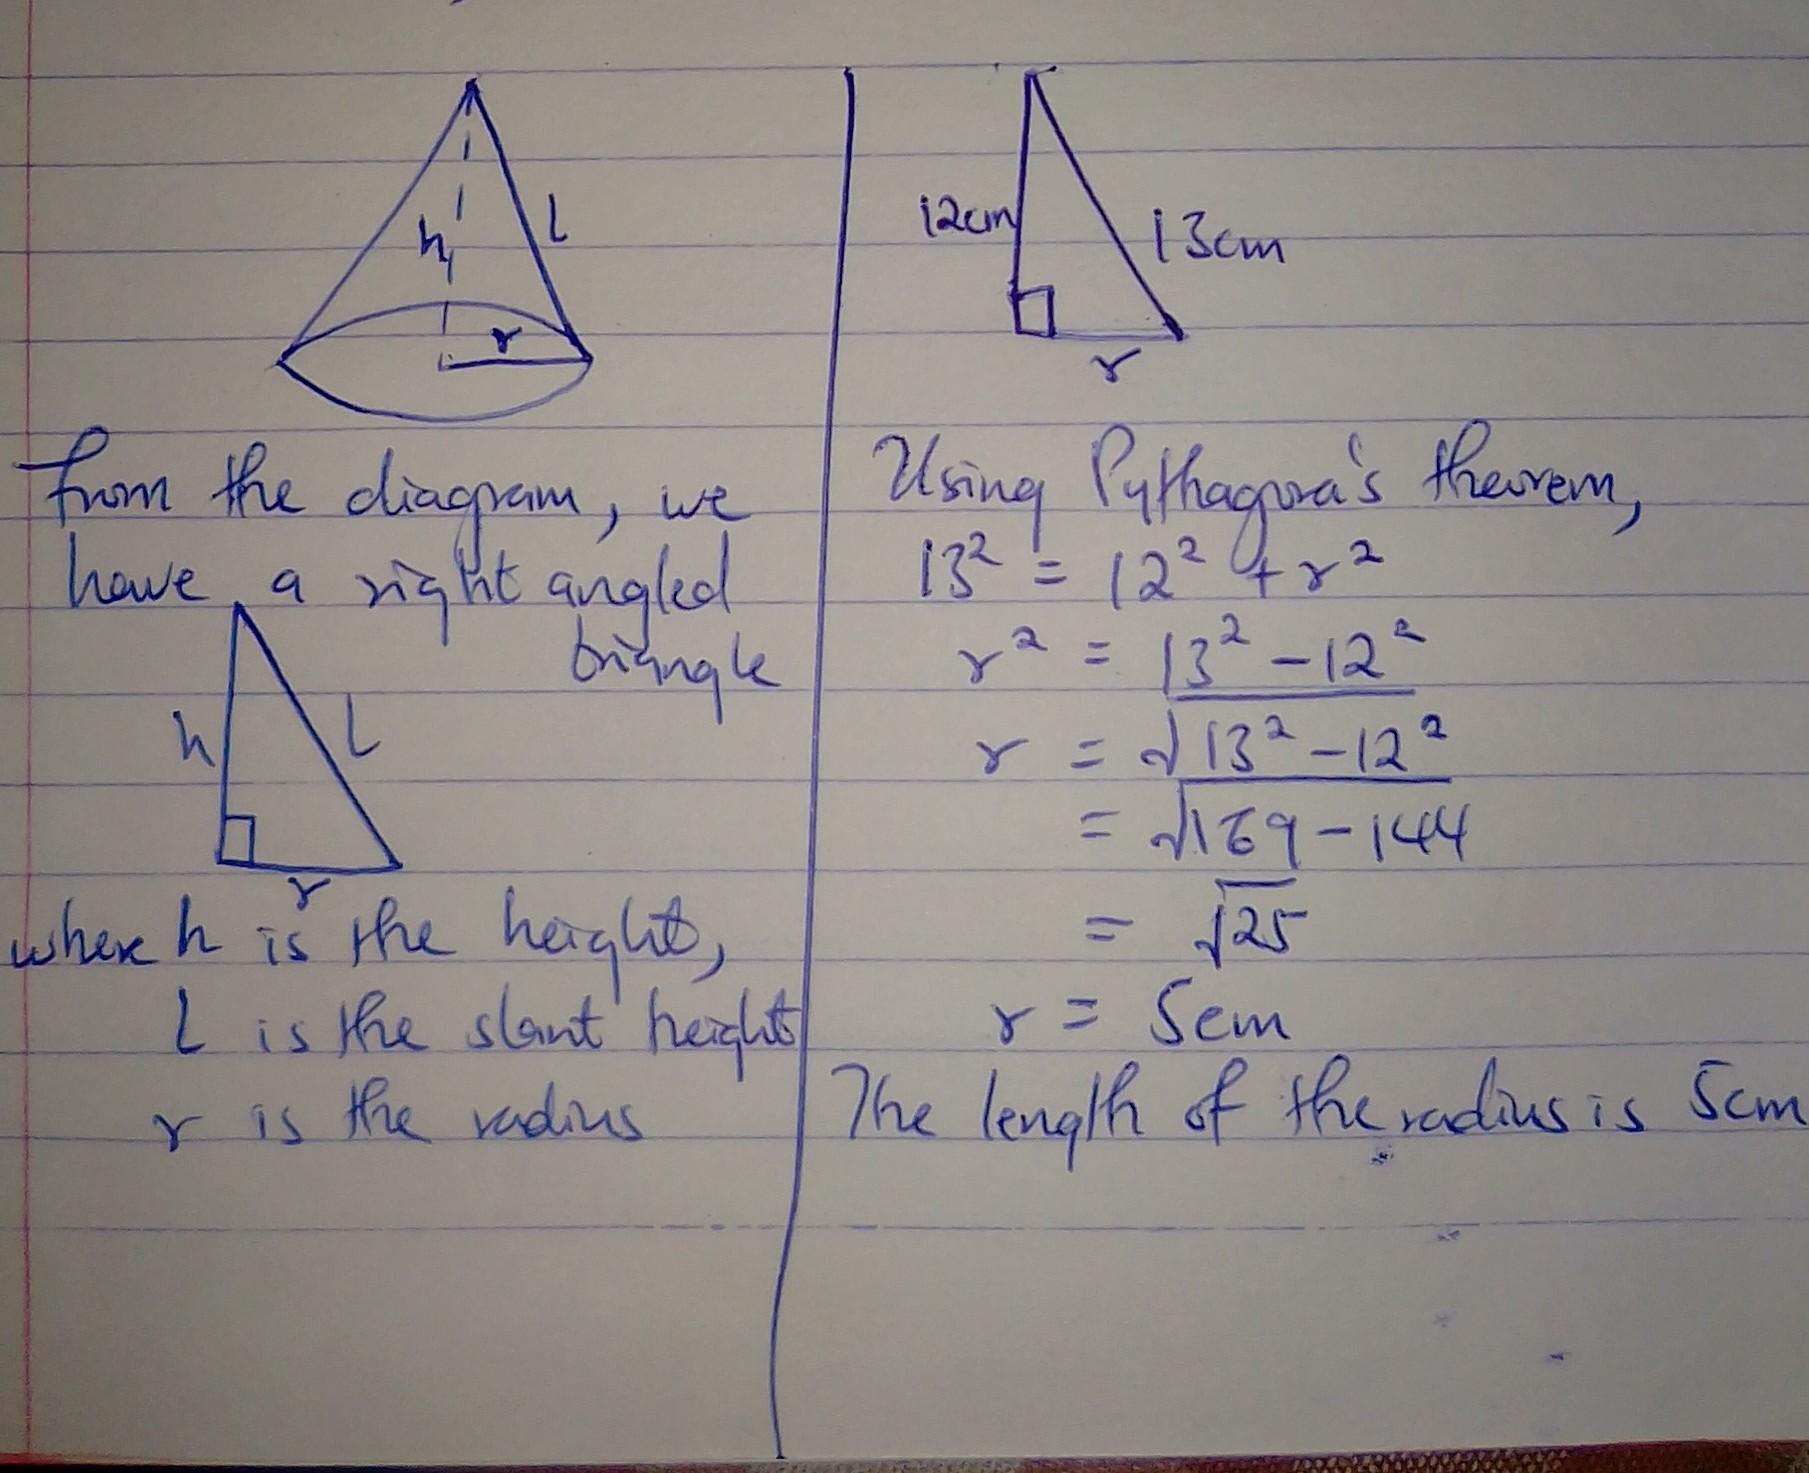 h
l
r
From the diagram, we
have a right angled
triangle
h
l
r
where h is the height,
l is the slant height
r is the radius
12cm
13cm
r
Using Pythagora's theorem,
13² = 12² + r²
r² = 13² - 12²
r = √13² - 12²
= √169 - 144
= √25
r = 5cm
The length of the radius is 5cm